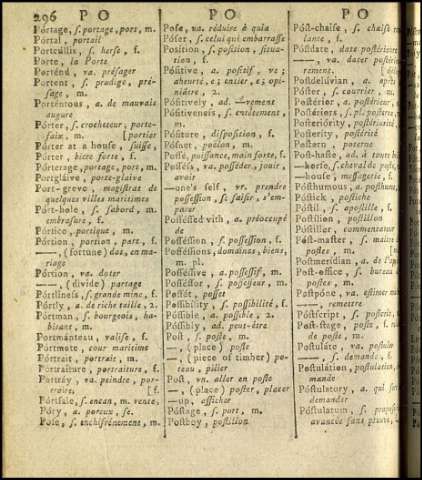 296 PO
PO
PO
Pórtage, ſ. portage, port, m.
Pórtal, portail
Portcúllis, ſ. herſe, f.
Porte, la Porte
Porténd, va. préſager
Pórtent, ſ. prodige, pré-
ſage, m.
Porténtous, a. de mauvais
augure
Pórter, ſ. crocheteur, porte-
faix. m. [portier
Pórter at a house, ſuiſſe,
Pórter, biere forte, f.
Pórterage, portage, port, m.
Pórtglave, porte-glaive
Port-greve, magiſtrat de
quelques villes maritimes
Pórt-hole, ſ. ſabord, m.
embraſure, f.
Pórtico, portique, m.
Pórtion, portion, part, f.
——, (fortune) dot, en ma-
riage
Pórtion, va. doter
——, (divide) partage
Pórtlineſs, ſ. grande mine, f.
Pórtly, a. de riche taille, 2.
Pórtman, ſ. bourgeois, ha-
bitant, m.
Portmánteau, valiſe, f.
Portmote, cour maritime
Pórtrait, portrait, m.
Pórtraiture, portraiture, f.
Portráy, va. peindre, por-
traire, [f.
Pórtſale, ſ. encan, m. vente,
Póry, a. poreux, ſe.
Poſe, ſ. enchifrénement, m.
Poſe, va. réduire à quia
Póſer, ſ. celui qui embarraſſe
Poſition, ſ. poſition, ſitua-
tion, f.
Póſitive, a. poſitif, ve;
aheurté, e; entier, e; opi-
niâtre, 2.
Póſitively, ad. —vement
Póſitiveneſs, ſ. entêtement,
m.
Póſiture, diſpoſition, f.
Póſnet, poëlon, m.
Poſſe, puiſſance, main forte, f.
Poſſéſs, va. poſſéder, jouir,
avoir
—one's ſelf, vr. prendre
poſſeſſion, ſe ſaiſir, s'em-
parer
Poſſéſſed with, a. préoccupé
de
Poſſéſſion, ſ. poſſeſſion, f.
Poſſéſſions, domaines, biens,
m. pl.
Poſſéſſive, a. poſſeſſif, m.
Poſſéſſor, ſ. poſſeſſeur, m.
Póſſet, poſſet
Poſſibílity, ſ. poſſibilité, f.
Póſſible, a. poſſible, 2.
Póſſibly, ad. peut-être
Poſt, ſ. poſte, m.
—, (place) poſte
—, (piece of timber) po-
teau, pilier
Poſt, vn. aller en poſte
—, (place) poſter, placer
—up, afficher
Póſtage, ſ. port, m.
Poſtboy, poſtillon
Póſt-chaiſe, ſ. chaiſe
tante, f.
Póſtdate, date poſtérieure
——, va. dater poſtérieure-
rement.
Poſtdilúvian, a.
Póſter, ſ. courrier, m.
Poſtérior, a. poſtérieur,
Poſtériors, ſ. pl.
Poſteriórity, poſtériorité
Poſtérity, poſtérité
Póſtern, poterne
Poſt-haſte, ad. à toute
—horſe, cheval de poſte
—houſe, meſſagerie, f.
Póſthumous, a. poſthume
Póſtick, poſtiche
Póſtil, ſ. apoſtille, f.
Poſtílion, poſtillon
Póſtiller, commentateur
Póſt-maſter, ſ. maitre
poſtes, m.
Poſtmerídian, a. de l'après
Póſt-office, ſ. bureau
poſtes, m.
Poſtpóne, va. eſtimer
remettre
Póſtſcript, ſ.
Póſt-ſtage, poſte, f.
de poſte, m.
Póſtulate, va.
——, ſ. demande, f.
Poſtulátion, poſtulation
mande
Póſtulatory, a. qui
demander
Póſtulatum, ſ.
avancée ſans preuve,